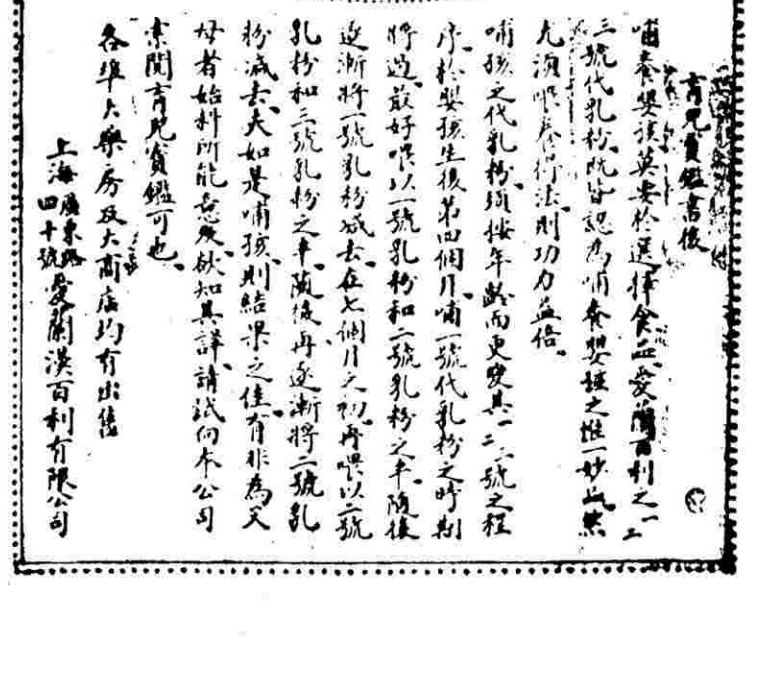 育兒寶鑑書後
哺養嬰孩莫要於選擇食品愛蘭百利之一二
三號代乳粉既皆認為哺養嬰孩之惟一妙品然
尤須喂養得法則功力益倍。
哺孩之代乳粉須按年齡而更變其一二三號之程
序、於嬰孩生後第四個月、哺一號代乳粉之時期
將過、最好喂以一號乳粉和二號乳粉之半、隨後
逐漸將一號乳粉減去、在七個月之初、再喂以二號
乳粉和三號乳粉之半、隨後再逐漸將二號乳
粉減去、夫如是哺孩、則結果之佳、有非為父
母者始料所能急及、欲知其詳、請試向本公司
索閱育兒寶鑑可也、
各埠大藥房及大商店均有出售
上海廣東路四十號愛蘭漢百利有限公司